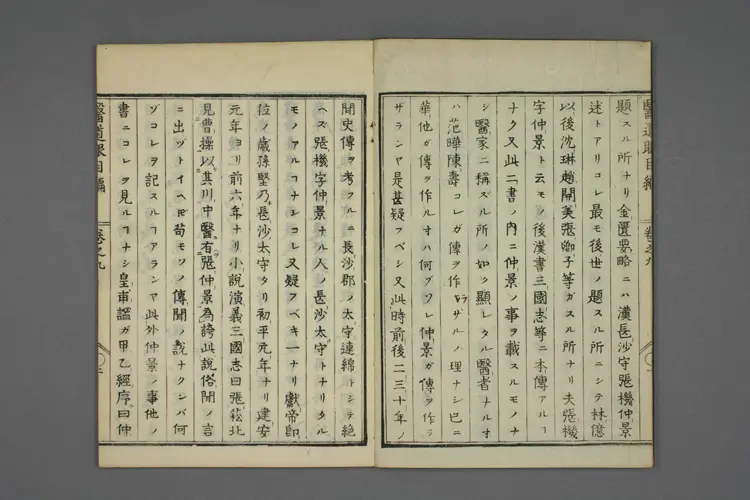 題スル所ナリ金匱要略ニハ漢長沙守張機仲景
述トアリコレ最モ後世ノ題スル所ニシテ林億
以後沈琳趙開美張卿子等ガスル所ナリ夫張機
字仲景ト云モノ後漢書三國志等ニ本傳アルコ
ナク又此二書ノ内ニ仲景ノ事ヲ載スルモノナ
シ醫家ニ稱スル所ノ如ク顯レタル醫者ナルオ
ハ范曄陳壽コレガ傳ヲ作ラザルノ理ナシ已ニ
華他ガ傳ヲ作ルオハ何ゾソレ仲景ガ傳ヲ作ラ
ザランヤ是甚疑フベシ又此時前後二三十年ノ
聞史傳ヲ考フルニ長沙郡ノ太守連綿トシテ絶
ヘズ張機字仲景ナル人ノ長沙太守トナリタル
モノアルコナシコレ又疑フベキ一ナリ獻帝即
位ノ歳孫堅乃長沙太守タリ初平元年ナリ建安
元年ヨリ前六年ナリ小說演義三國志曰張松北
見曹操以其川中醫有張仲景為誇此說俗間ノ言
ニ出ヅトイヘドモ苟モソノ傳聞ノ說ナクンバ何
ゾコレヲ記スルコアランヤ此外仲景ノ事他ノ
書ニコレヲ見ルコナシ皇甫謐ガ甲乙經序曰仲
醫道眼目編
卷之九